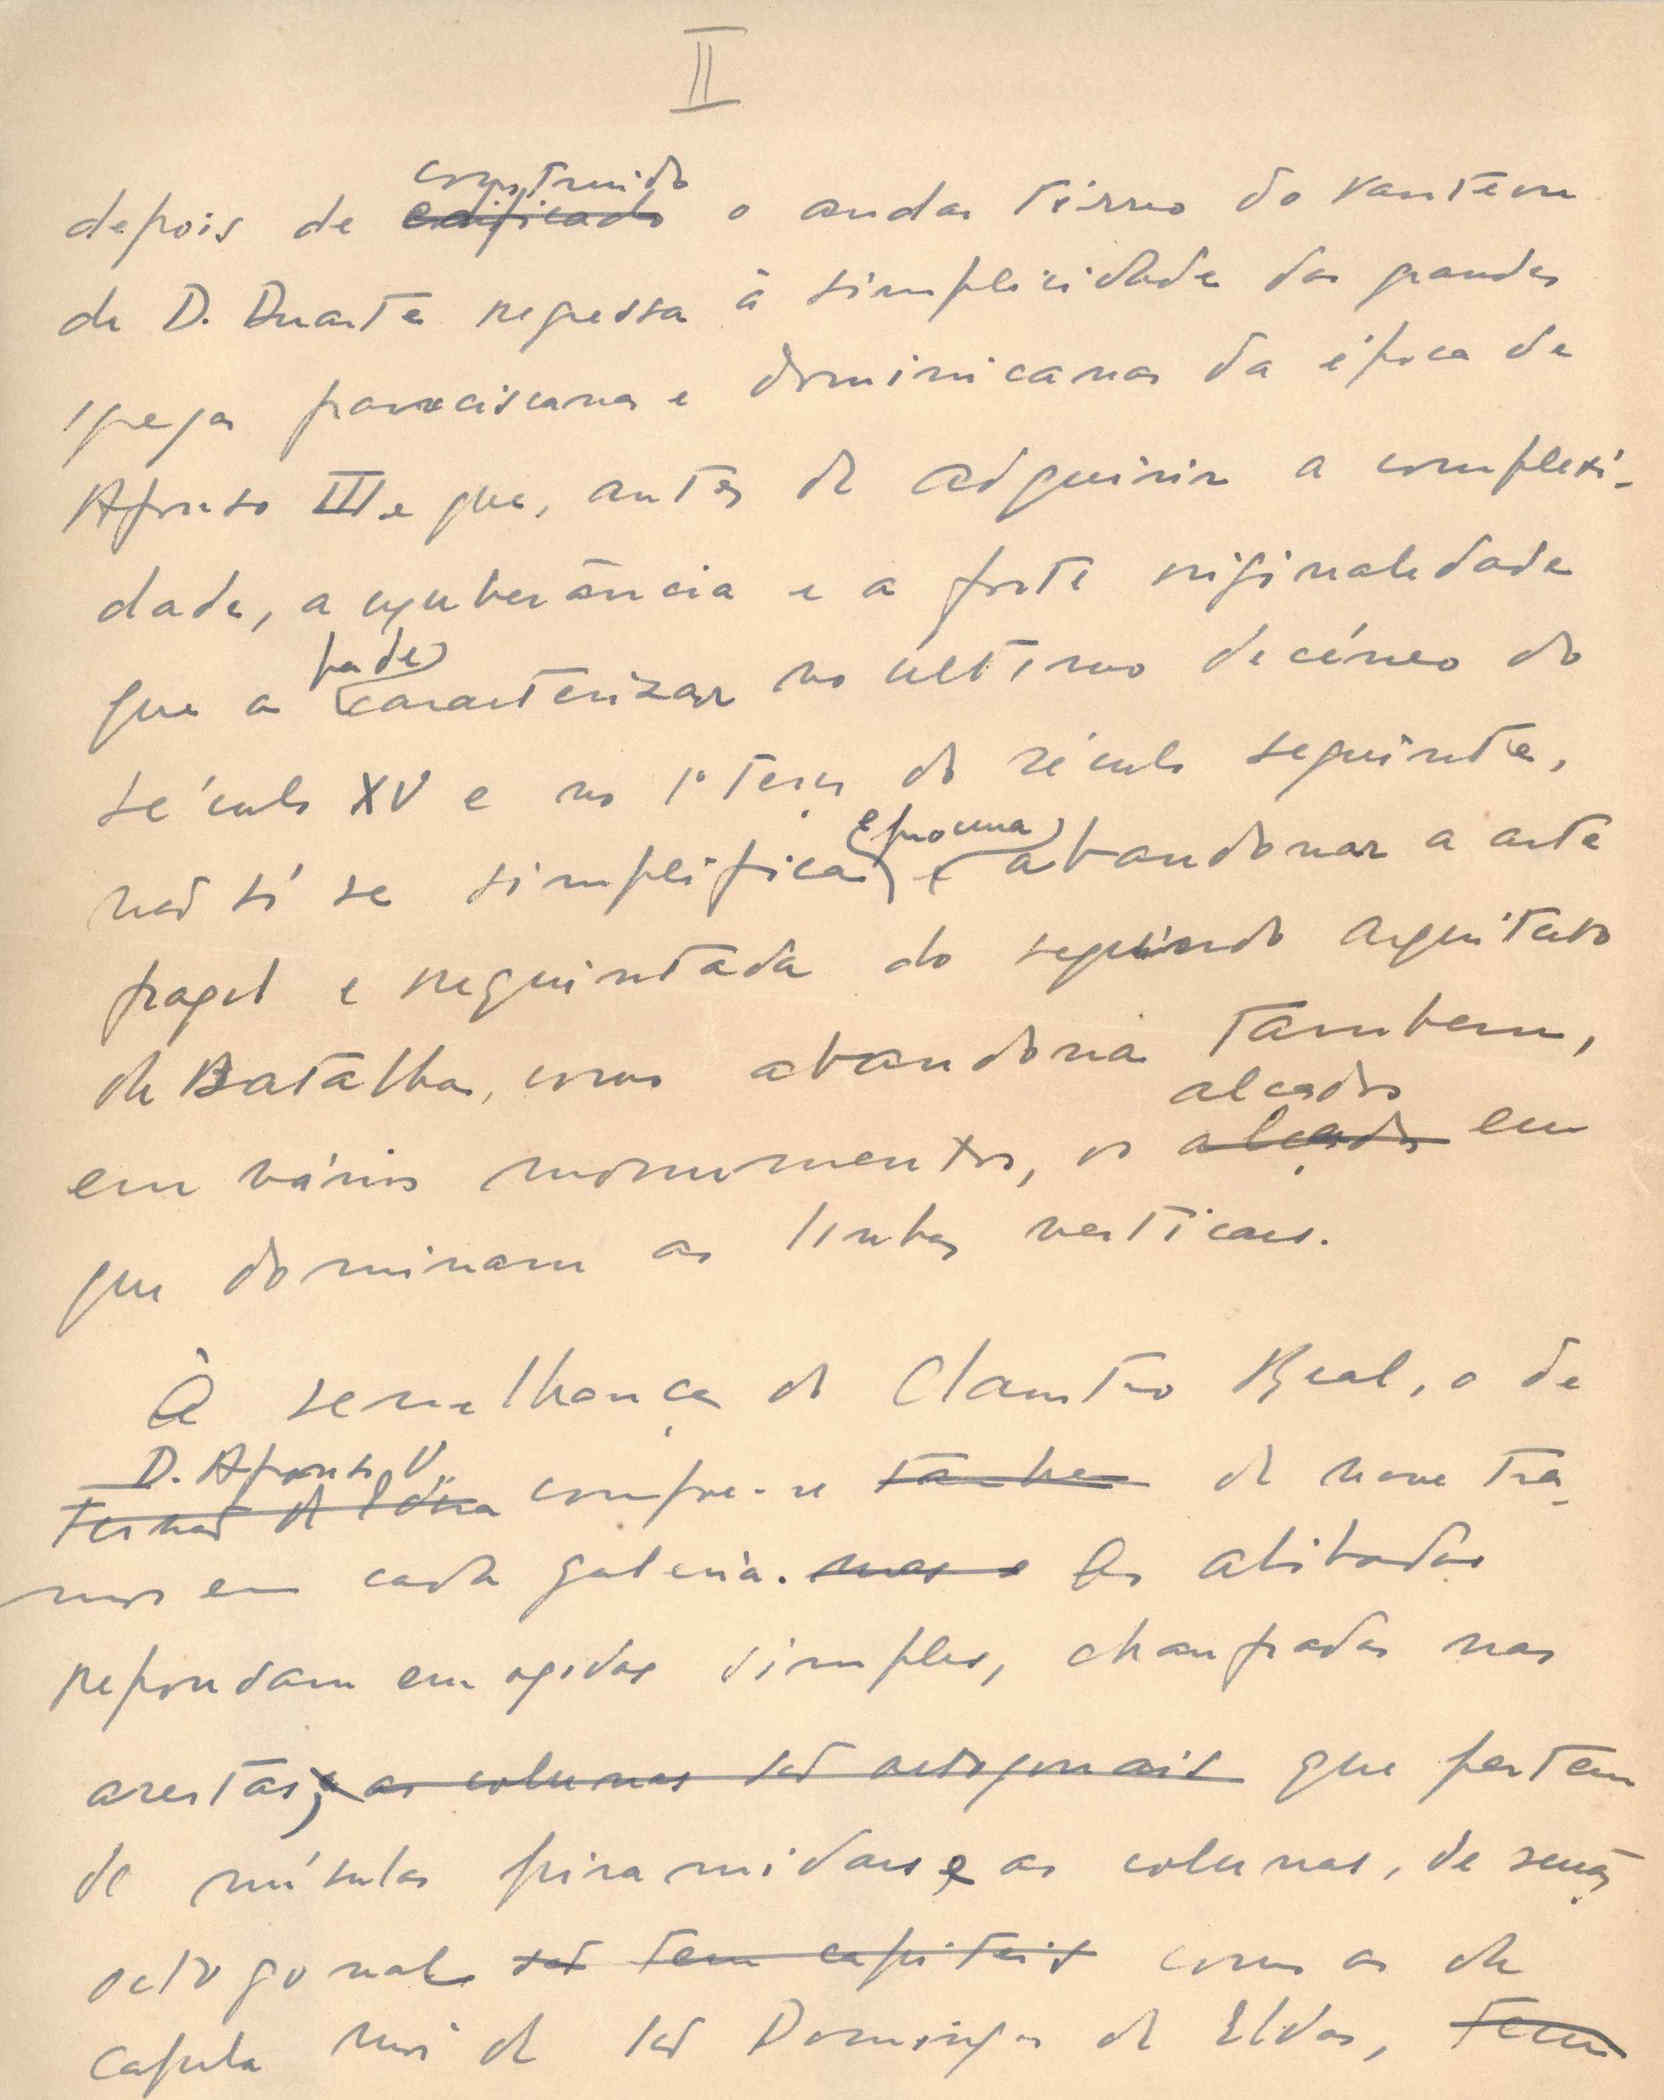 II
construido
depois de edificado o andar térreo do panteon
de D. Duarte regressa à simplicidade das grandes
igrejas franciscanas e dominicanas da época de
Afonso III e que, antes de adquirir a complexi-
dade, a exuberância e a forte originalidade
pode
que a caracterizar no ultimo decéneo do
século XV e no 1º terço do século seguinte,
não só se simplifica e procura abandonar a arte
fragil e requintada do segundo arquitecto
da Batalha, como abandona tambem,
alçados
em vários monumentos, os alçados em
que dominam as linhas verticais.
À semelhança do Claustro Real, o de
D. Afonso V
Fernão de Évora compõe-se tambem de nove tra-
mos em cada galeria. mas As abobadas
repousam em ogivas simples, chanfradas nas
arestas, e as colunas são octogonais que partem
de mísulas piramidais e as colunas, de secção
octogonal são tem capiteis como as da
capela mór de São Domingos de Elvas, tem